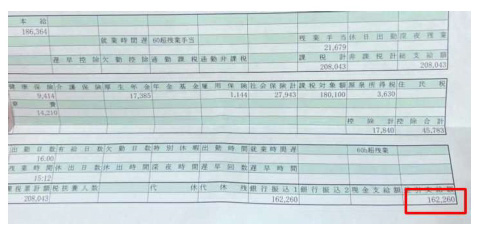 本 給
186,364
就業時間遅 60超残業手当 残業手当 休日出勤 深夜残業
21,679
遅早控除 欠勤控除 通勤課税 通勤非課税 課税計 非課税計 総支給額
208,043 208,043
健康保険 介護保険 厚生年金 年金基金 雇用保険 社会保険計 課税対象額 源泉所得税 住民税
9,414 17,385 1,144 27,943 180,100 3,630
費
14,210
控除計 控除合計
17,840 45,783
出勤日数 有給日数 欠勤日数 特別休暇 出勤時間 就業時間遅 60h超残業
16.00
残業時間 休出日数 休出時間 深夜時間 遅早回数 遅早時間
15:12
税累計額 税扶養人数 代休 代休残 銀行振込1 銀行振込2 現金支給額
208,043 162,260 162,260